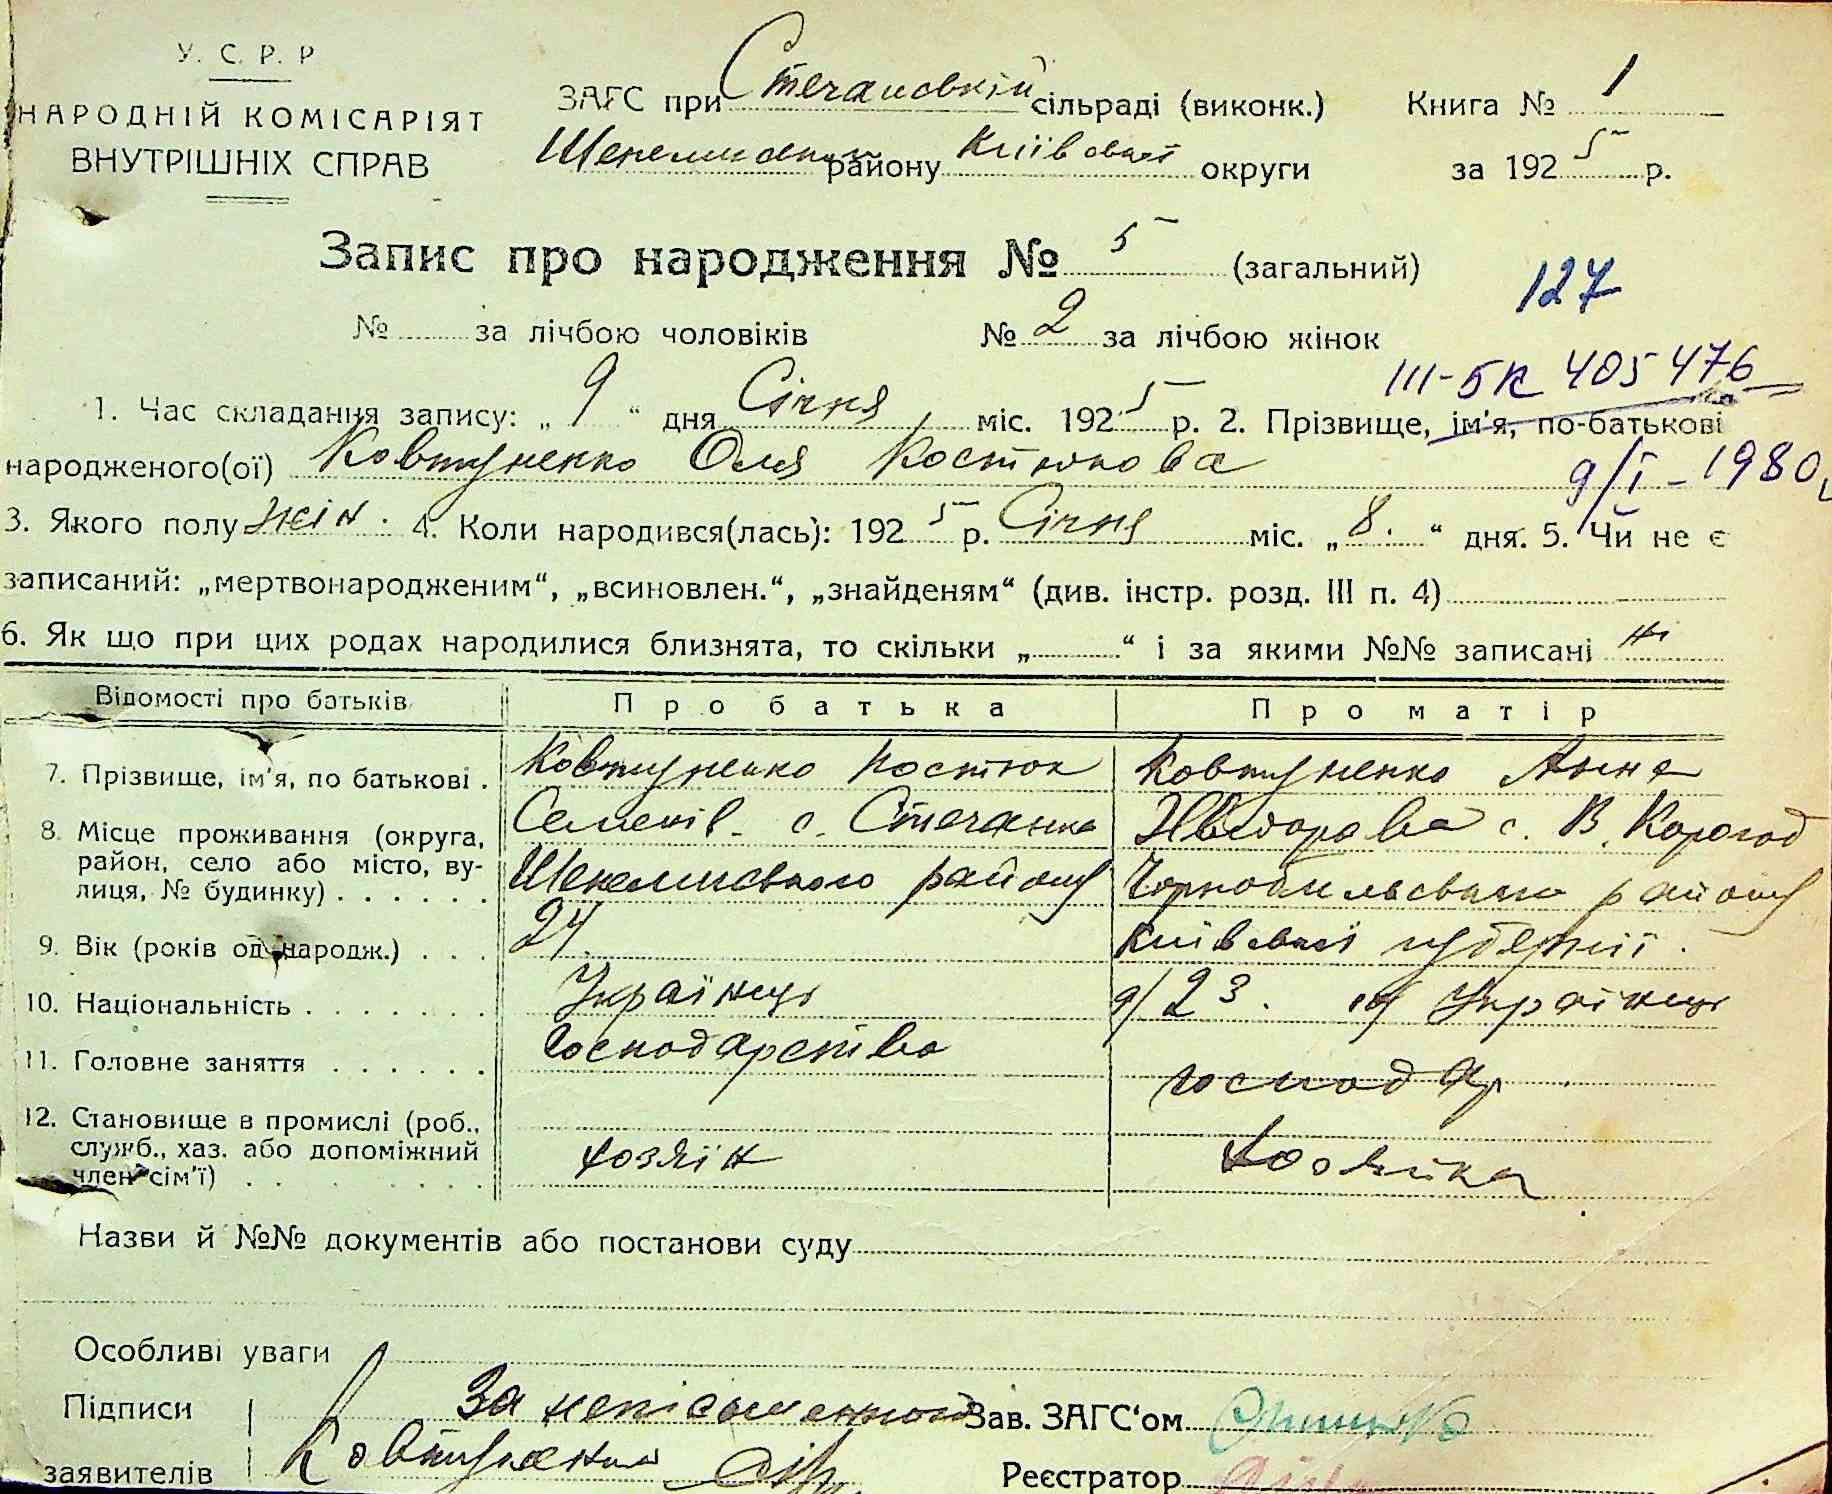 У. С. Р. Р
НАРОДНІЙ КОМІСАРІЯТ
ВНУТРІШНІХ СПРАВ
ЗАГС при Стечанській сільраді (виконк.)
Книга № 1
району Київської округи
за 1925 р.
Запис про народження № 5 (загальний)
127
№ за лічбою чоловіків № 2 за лічбою жінок
III-БК 405476
1. Час складання запису: „ 9 “ дня Січня міс. 1925 р. 2. Прізвище, ім'я, по-батькові
народженого(ої) Ковтуненко Оля Костюкова
9/I - 1980
3. Якого полу жін. 4. Коли народився(лась): 1925 р. Січня міс. „ 8. “ дня. 5. Чи не є
записаний: „мертвонародженим“, „всиновлен.“, „знайденям“ (див. інстр. розд. III п. 4)
6. Як що при цих родах народилися близнята, то скільки „ “ і за якими №№ записані ні
Відомості про батьків Про батька Про матір
7. Прізвище, ім'я, по батькові . Ковтуненко Костюк Ковтуненко Анна
Семенів. с. Стечанка с. В. Корогод
8. Місце проживання (округа,
район, село або місто, ву-
лиця, № будинку) . . . . . . району Чорнобильського району
9. Вік (років од народж.) . . . 24 Київської губернії.
10. Національність . . . . . . . Українці 9/ 23. 10/ Українці
11. Головне заняття . . . . . . Господарство господар
12. Становище в промислі (роб.,
служб., хаз. або допоміжний
член сім'ї) . . . . . . . . хозяїн Хозяїка
Назви й №№ документів або постанови суду
Особливі уваги
Підписи За Зав. ЗАГС'ом
заявителів Реєстратор